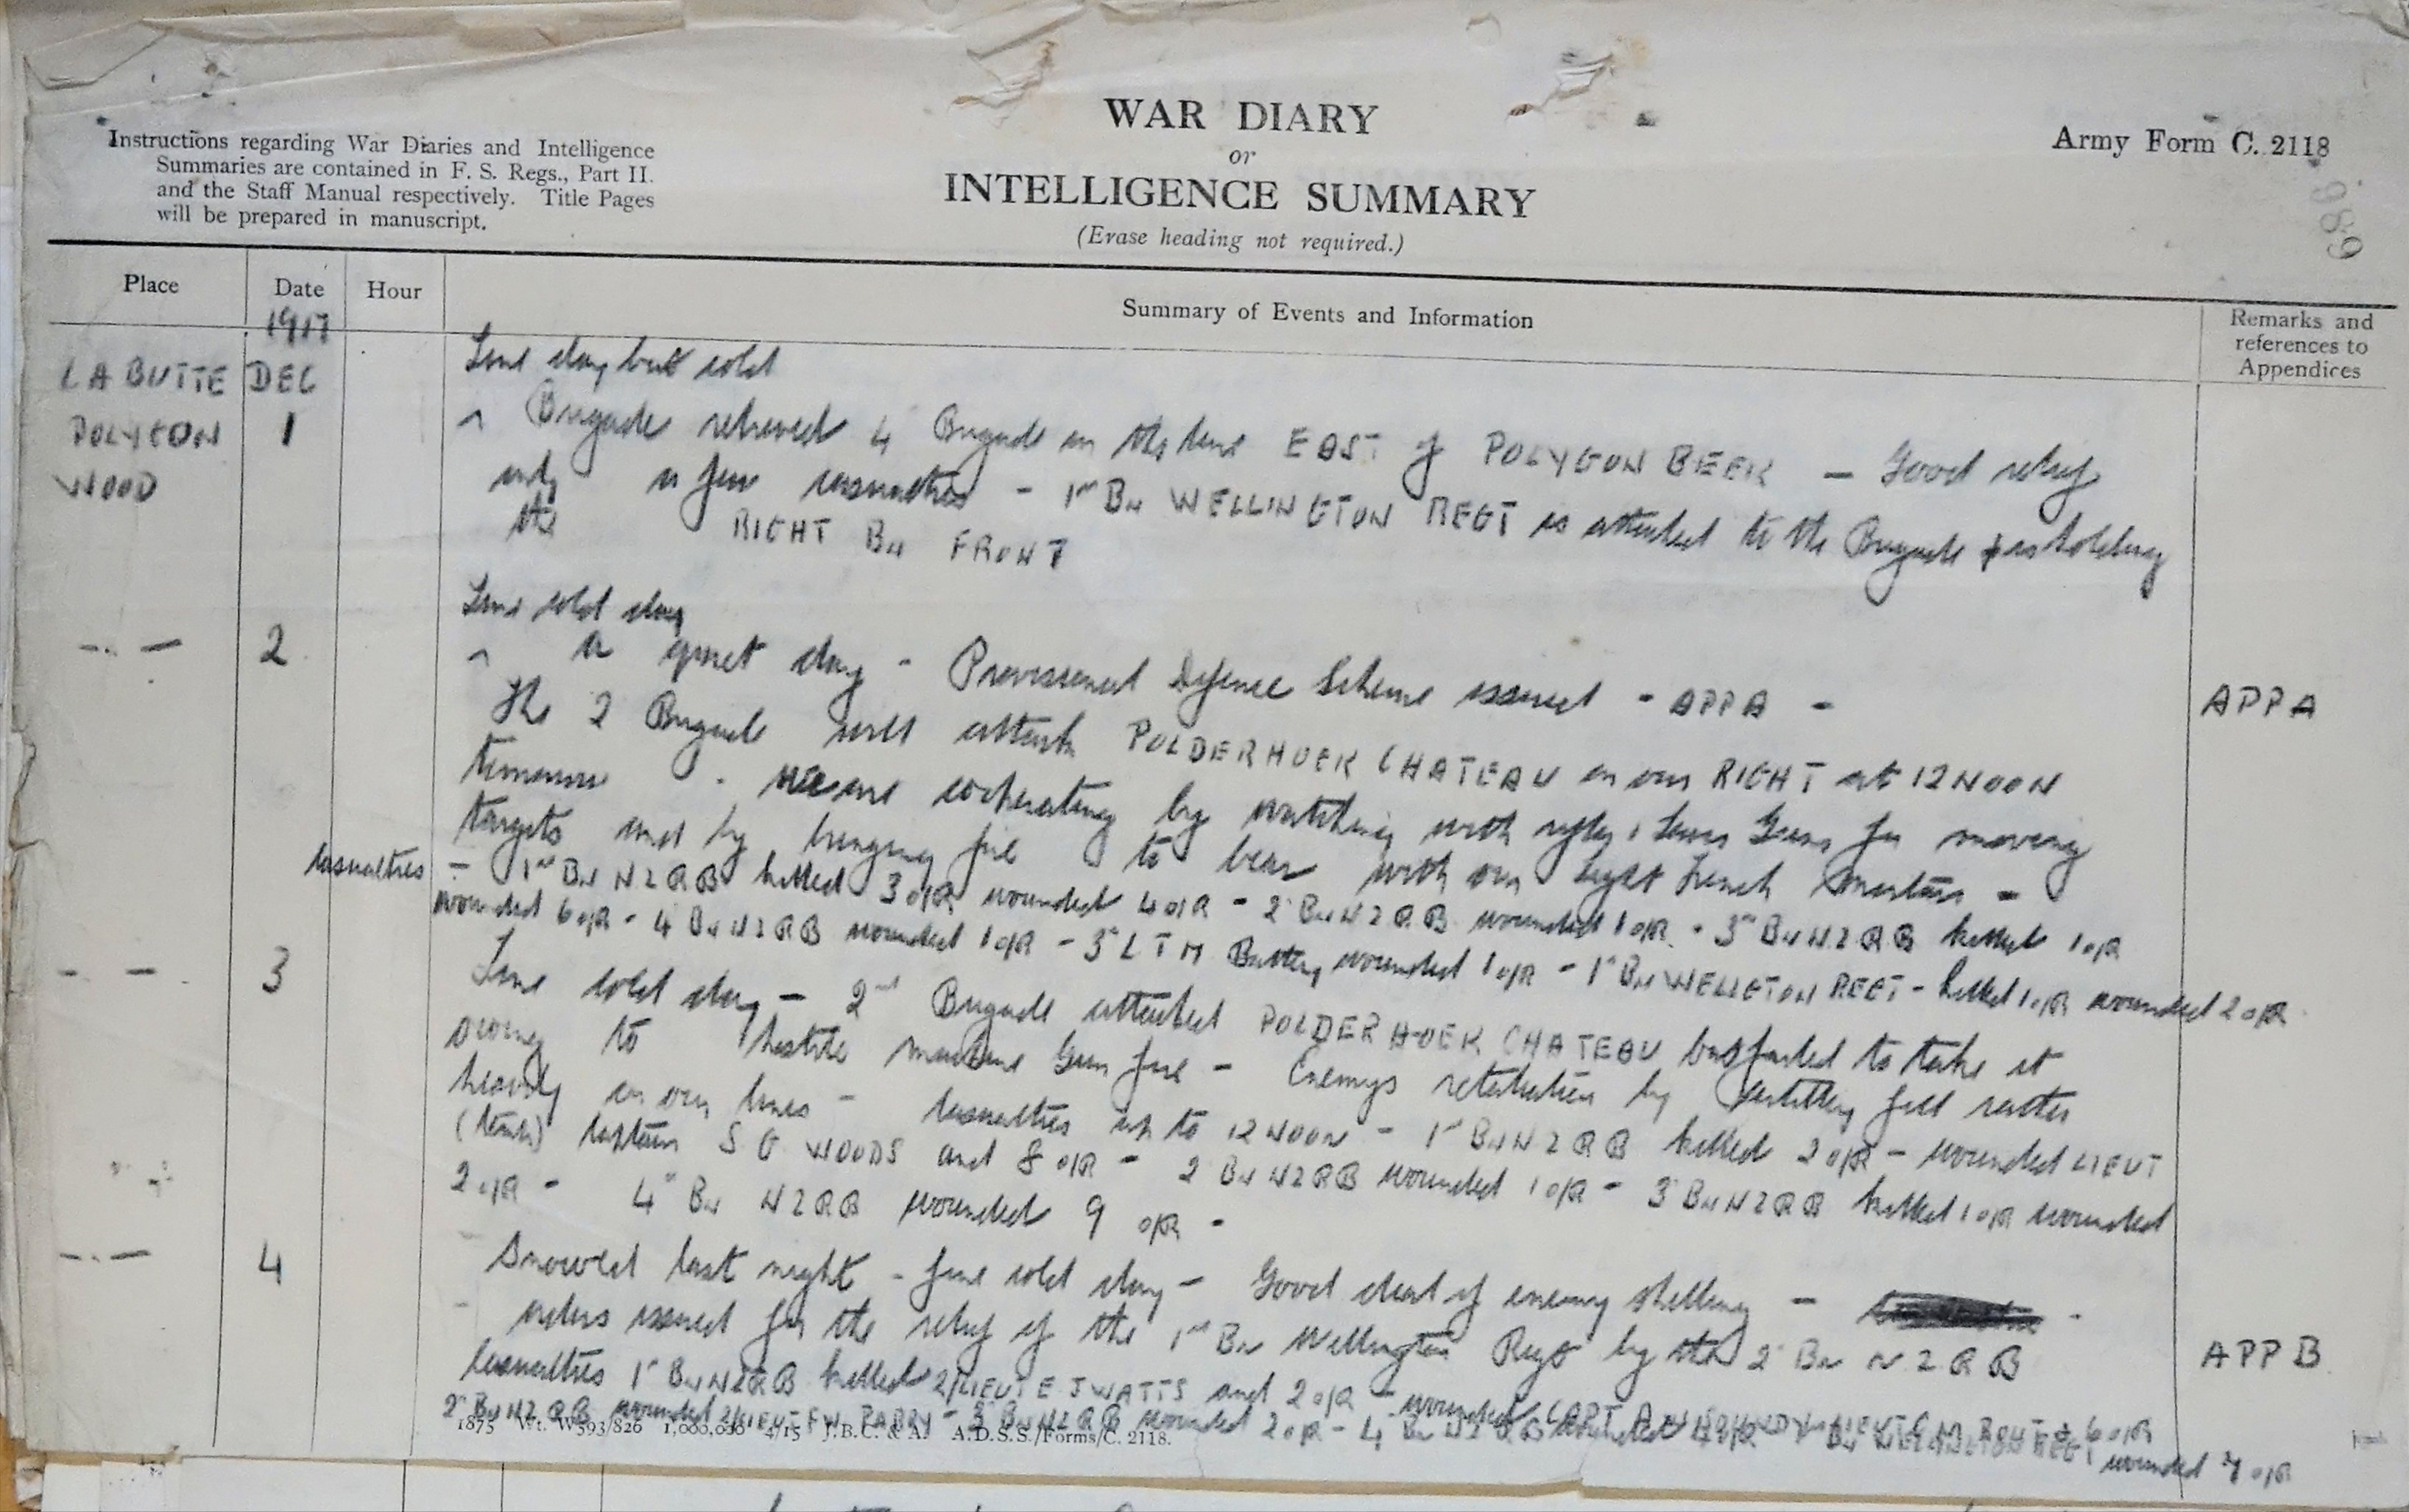 Instructions regarding War Diaries and Intelligence
Summaries are contained in F. S. Regs., Part II.
and the Staff Manual respectively. Title Pages
will be prepared in manuscript.
WAR DIARY
or
INTELLIGENCE SUMMARY
(Erase heading not required.)
Army Form C. 2118
989
Place
Date
Hour
Summary of Events and Information
Remarks and
references to
Appendices
1917
LA BUTTE DEC
POLYGON 1
WOOD
Fine day but cold
^ Brigade relieved 4 Brigade in the line EAST of POLYGON BEEK – Good relief
only a few casualties - 1st Bn WELLINGTON REGT is attached to the Brigade & is holding
the RIGHT BN FRONT
Fine cold day
-.- 2 ^ A quiet day - Provisional Defence Scheme issued - APPA - APPA
The 2 Brigade will attack POLDERHOEK CHATEAU on our RIGHT at 12 NOON
tomorrow. We are cooperating by watching with rifles & Lewis Guns for moving
targets and by bringing fire to bear with our Light Trench Mortars -
Casualties - 1st BN NZRB killed 3 O/R wounded 4 O/R - 2 BN NZRB wounded 1 O/R - 3rd BN NZRB killed 1 O/R
wounded 6 O/R - 4 BN NZRB wounded 1 O/R - 3 LTM Battery wounded 1 O/R - 1st BN WELLGTON REGT - killed 1 O/R wounded 2 O/R
- - 3 Fine cold day - 2nd Brigade attacked POLDERHOEK CHATEAU but failed to take it
owing to hostile machine Gun fire - Enemys retaliation by artillery fell rather
heavily on our lines - Casualties up to 12 NOON - 1st BN NZRB killed 2 O/R - wounded LIEUT
Captain S G WOODS and 8 O/R - 2 BN NZRB wounded 1 O/R - 3 BN NZRB killed 1 O/R wounded
2 O/R - 4th BN NZRB wounded 9 O/R -
-.- 4 Snowed last night - fine cold day - Good deal of enemy shelling -
- orders issued for the relief of the 1st Bn Wellington Regt by the 2 Bn NZRB APP B
Casualties 1st BN NZRB killed 2/LIEUT E J WATTS and 2 O/R - wounded CAPT 6 O/R
2 BN NZRB wounded 2/LIEUT F W PARRY - 3 BN NZRB wounded 2 O/R - 4 BN NZRB wounded REGT wounded 7 O/R
1875 Wt. W593/826 1,000,000 4/15 J.B.C. & A. A.D.S.S./Forms/C. 2118.